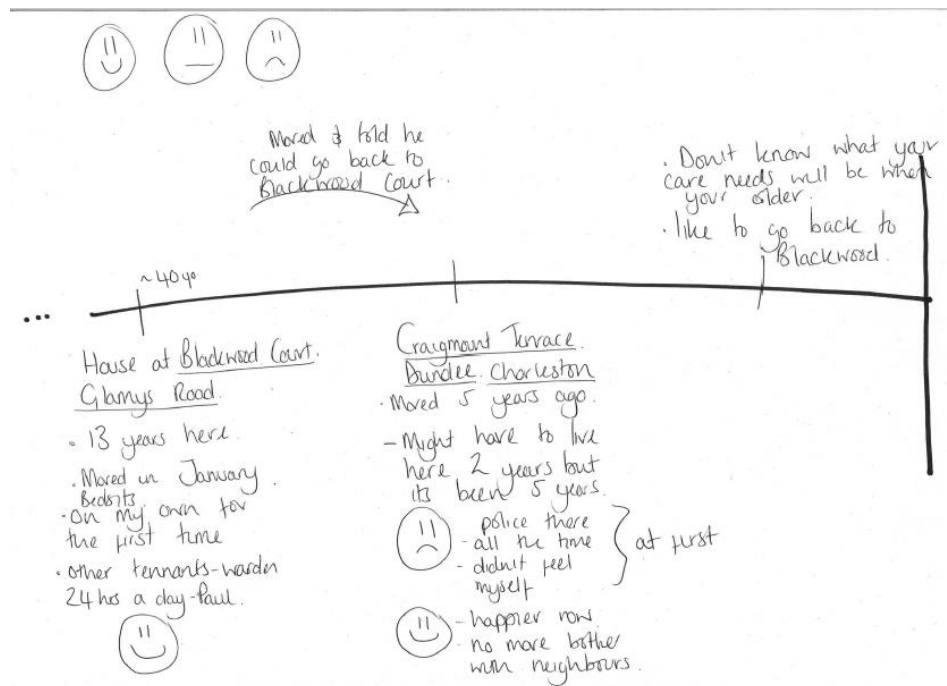 Moved & told he
could go back to
Blackwood Court.
. Don't know what your
care needs will be when
your older.
. like to go back to
Blackwood.
~40yo
...
House at Blackwood Court.
Glamys Road.
. 13 years here.
. Moved in January
Bedsits
. On my own for
the first time
. other tennants - warden
24hrs a day - Paul.
Craigmount Terrace.
Dundee. Charleston
. Moved 5 years ago.
- Might have to live
here 2 years but
its been 5 years.
police there
- all the time
- didn't feel
myself
at first
- happier now
- no more bother
with neighbours.